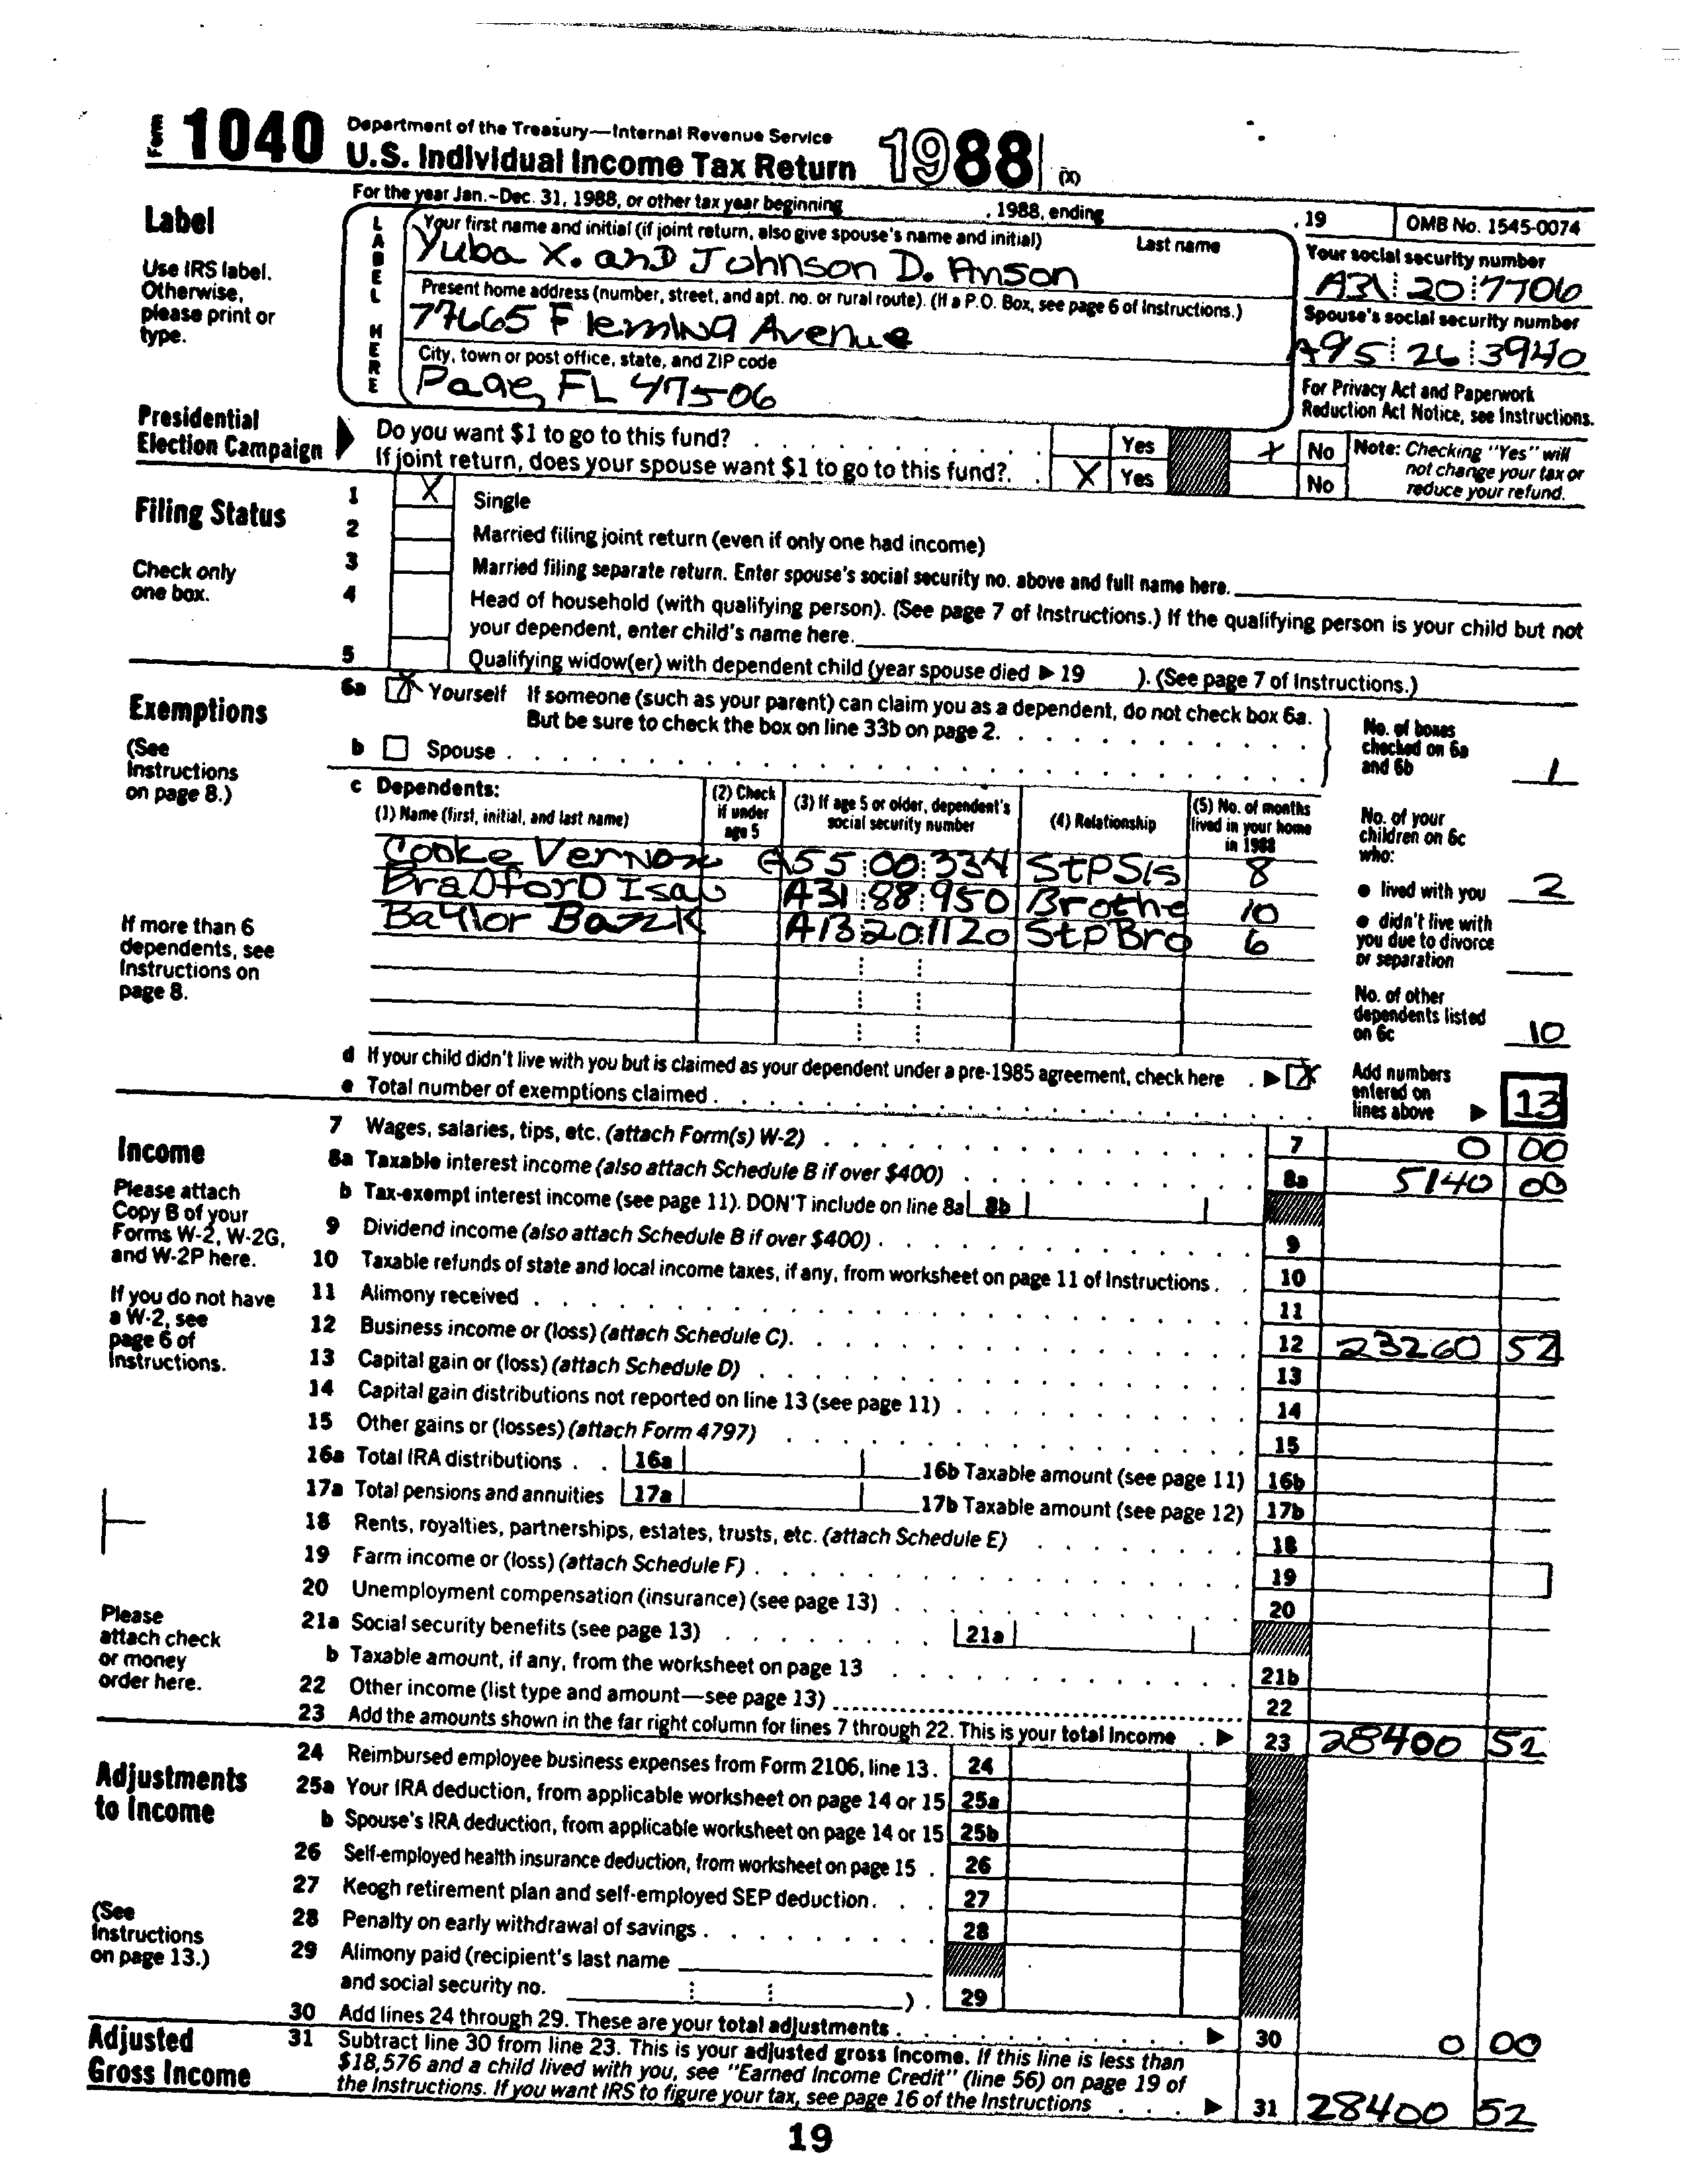 Form 1040 Department of the Treasury—Internal Revenue Service
U.S. Individual Income Tax Return 1988 (X)
For the year Jan.-Dec. 31, 1988, or other tax year beginning , 1988, ending , 19 OMB No. 1545-0074
Label
Use IRS label.
Otherwise,
please print or
type.
LABEL HERE
Your first name and initial (if joint return, also give spouse's name and initial) Last name
Yuba X. and Johnson D. Anson
Your social security number
A31 20 7706
Present home address (number, street, and apt. no. or rural route). (If a P.O. Box, see page 6 of Instructions.)
77665 Fleming Avenue
Spouse's social security number
A95 26 3940
City, town or post office, state, and ZIP code
Page, FL 47506
For Privacy Act and Paperwork
Reduction Act Notice, see Instructions.
Presidential
Election Campaign
Do you want $1 to go to this fund? Yes X No
If joint return, does your spouse want $1 to go to this fund? X Yes No
Note: Checking "Yes" will
not change your tax or
reduce your refund.
Filing Status
Check only
one box.
1 X Single
2 Married filing joint return (even if only one had income)
3 Married filing separate return. Enter spouse's social security no. above and full name here.
4 Head of household (with qualifying person). (See page 7 of Instructions.) If the qualifying person is your child but not
your dependent, enter child's name here.
5 Qualifying widow(er) with dependent child (year spouse died ▶ 19 ). (See page 7 of Instructions.)
Exemptions
(See
Instructions
on page 8.)
6a X Yourself If someone (such as your parent) can claim you as a dependent, do not check box 6a.
But be sure to check the box on line 33b on page 2.
b Spouse
No. of boxes
checked on 6a
and 6b 1
c Dependents:
(1) Name (first, initial, and last name)
(2) Check
if under
age 5
(3) If age 5 or older, dependent's
social security number
(4) Relationship
(5) No. of months
lived in your home
in 1988
Cooke Vernox A55 00 334 StpSis 8
Bradford Isab A31 88 950 Brothe 10
Baylor Bazzk A13 20 1120 StpBro 6
If more than 6
dependents, see
Instructions on
page 8.
No. of your
children on 6c
who:
● lived with you 2
● didn't live with
you due to divorce
or separation
No. of other
dependents listed
on 6c 10
d If your child didn't live with you but is claimed as your dependent under a pre-1985 agreement, check here ▶ X
e Total number of exemptions claimed
Add numbers
entered on
lines above ▶ 13
Income
Please attach
Copy B of your
Forms W-2, W-2G,
and W-2P here.
If you do not have
a W-2, see
page 6 of
Instructions.
Please
attach check
or money
order here.
7 Wages, salaries, tips, etc. (attach Form(s) W-2) 7 0 00
8a Taxable interest income (also attach Schedule B if over $400) 8a 5140 00
b Tax-exempt interest income (see page 11). DON'T include on line 8a 8b
9 Dividend income (also attach Schedule B if over $400) 9
10 Taxable refunds of state and local income taxes, if any, from worksheet on page 11 of Instructions 10
11 Alimony received 11
12 Business income or (loss) (attach Schedule C) 12 23260 52
13 Capital gain or (loss) (attach Schedule D) 13
14 Capital gain distributions not reported on line 13 (see page 11) 14
15 Other gains or (losses) (attach Form 4797) 15
16a Total IRA distributions 16a 16b Taxable amount (see page 11) 16b
17a Total pensions and annuities 17a 17b Taxable amount (see page 12) 17b
18 Rents, royalties, partnerships, estates, trusts, etc. (attach Schedule E) 18
19 Farm income or (loss) (attach Schedule F) 19
20 Unemployment compensation (insurance) (see page 13) 20
21a Social security benefits (see page 13) 21a
b Taxable amount, if any, from the worksheet on page 13 21b
22 Other income (list type and amount—see page 13) 22
23 Add the amounts shown in the far right column for lines 7 through 22. This is your total income ▶ 23 28400 52
Adjustments
to Income
(See
Instructions
on page 13.)
24 Reimbursed employee business expenses from Form 2106, line 13. 24
25a Your IRA deduction, from applicable worksheet on page 14 or 15 25a
b Spouse's IRA deduction, from applicable worksheet on page 14 or 15 25b
26 Self-employed health insurance deduction, from worksheet on page 15 26
27 Keogh retirement plan and self-employed SEP deduction 27
28 Penalty on early withdrawal of savings 28
29 Alimony paid (recipient's last name
and social security no. ). 29
30 Add lines 24 through 29. These are your total adjustments ▶ 30 0 00
Adjusted
Gross Income
31 Subtract line 30 from line 23. This is your adjusted gross income. If this line is less than
$18,576 and a child lived with you, see "Earned Income Credit" (line 56) on page 19 of
the Instructions. If you want IRS to figure your tax, see page 16 of the Instructions ▶ 31 28400 52
19